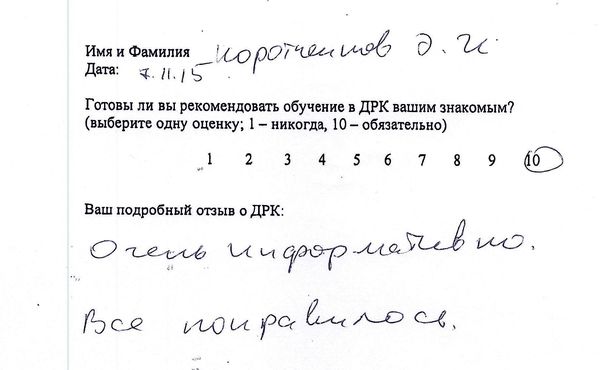 Имя и Фамилия Коротченков Д. И.
Дата: 7.11.15
Готовы ли вы рекомендовать обучение в ДРК вашим знакомым?
(выберите одну оценку; 1 – никогда, 10 – обязательно)
1 2 3 4 5 6 7 8 9 10
Ваш подробный отзыв о ДРК:
Очень информативно.
Все понравилось.